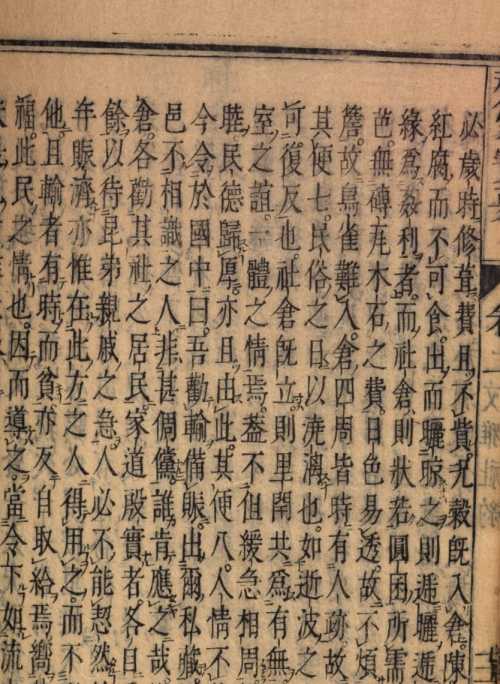 必歲時修葺費且不貲凡穀既入倉陳
紅腐而不可食出而曬晾之則遞曬遞
緣爲姦利者而社倉則狀若圓囷所需
芭無磚瓦木石之費日色易透故不煩
簷故鳥雀難入倉四周皆時有人跡故
其便七民俗之日以澆漓也如逝波之
可復反也社倉旣立則里閈共爲有無
室之誼一體之情焉葢不但緩急相周
睦民德歸厚亦且由此其便八人情不
今令於國中曰吾勸輸備賑出爾私藏
邑不相識之人非甚倜儻誰肯應之哉
倉各勸其社之居民家道殷實者各自
餘以待昆弟親戚之急人必不能恝然
年賑濟亦惟在此方之人得用之而不
他且輸者有時而貧亦反自取給焉嚮
福此民之情也因而導之當令下如流